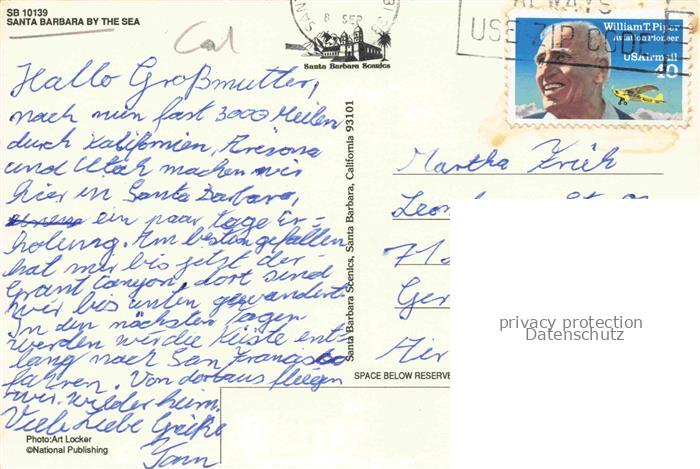 SB 10139
SANTA BARBARA BY THE SEA
Cal
8 SEP
ALWAYS
USE ZIP CODE
Santa Barbara Scenics
William T. Piper
Aviation Pioneer
USAirmail
40
Hallo Großmutter,
nach nun fast 3000 Meilen
durch Kalifornien, Arizona
und Utah machen wir
hier in Santa Barbara,
ein paar Tage Er-
holung. Am besten gefallen
hat mir bis jetzt der
Grant Canyon, dort sind
wir bis unten gewandert.
In den nächsten Tagen
werden wir die Küste ent-
lang nach San Francisco
fahren. Von dort aus fliegen
wir wieder heim.
Viele Liebe Grüße
Santa Barbara Scenics, Santa Barbara, California 93101
Martha
Leon
71
Ger
Air
SPACE BELOW RESERVE
privacy protection
Datenschutz
Photo:Art Locker
©National Publishing